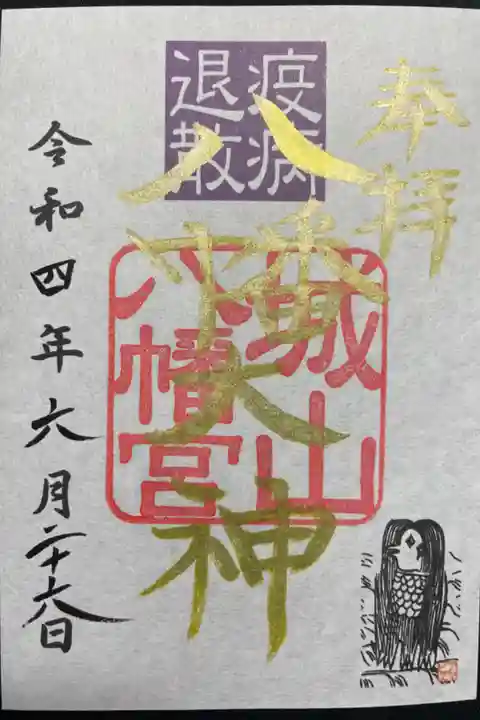 奉拝
疫病
退散
八幡大神
城山
八幡宮
令和四年六月二十六日